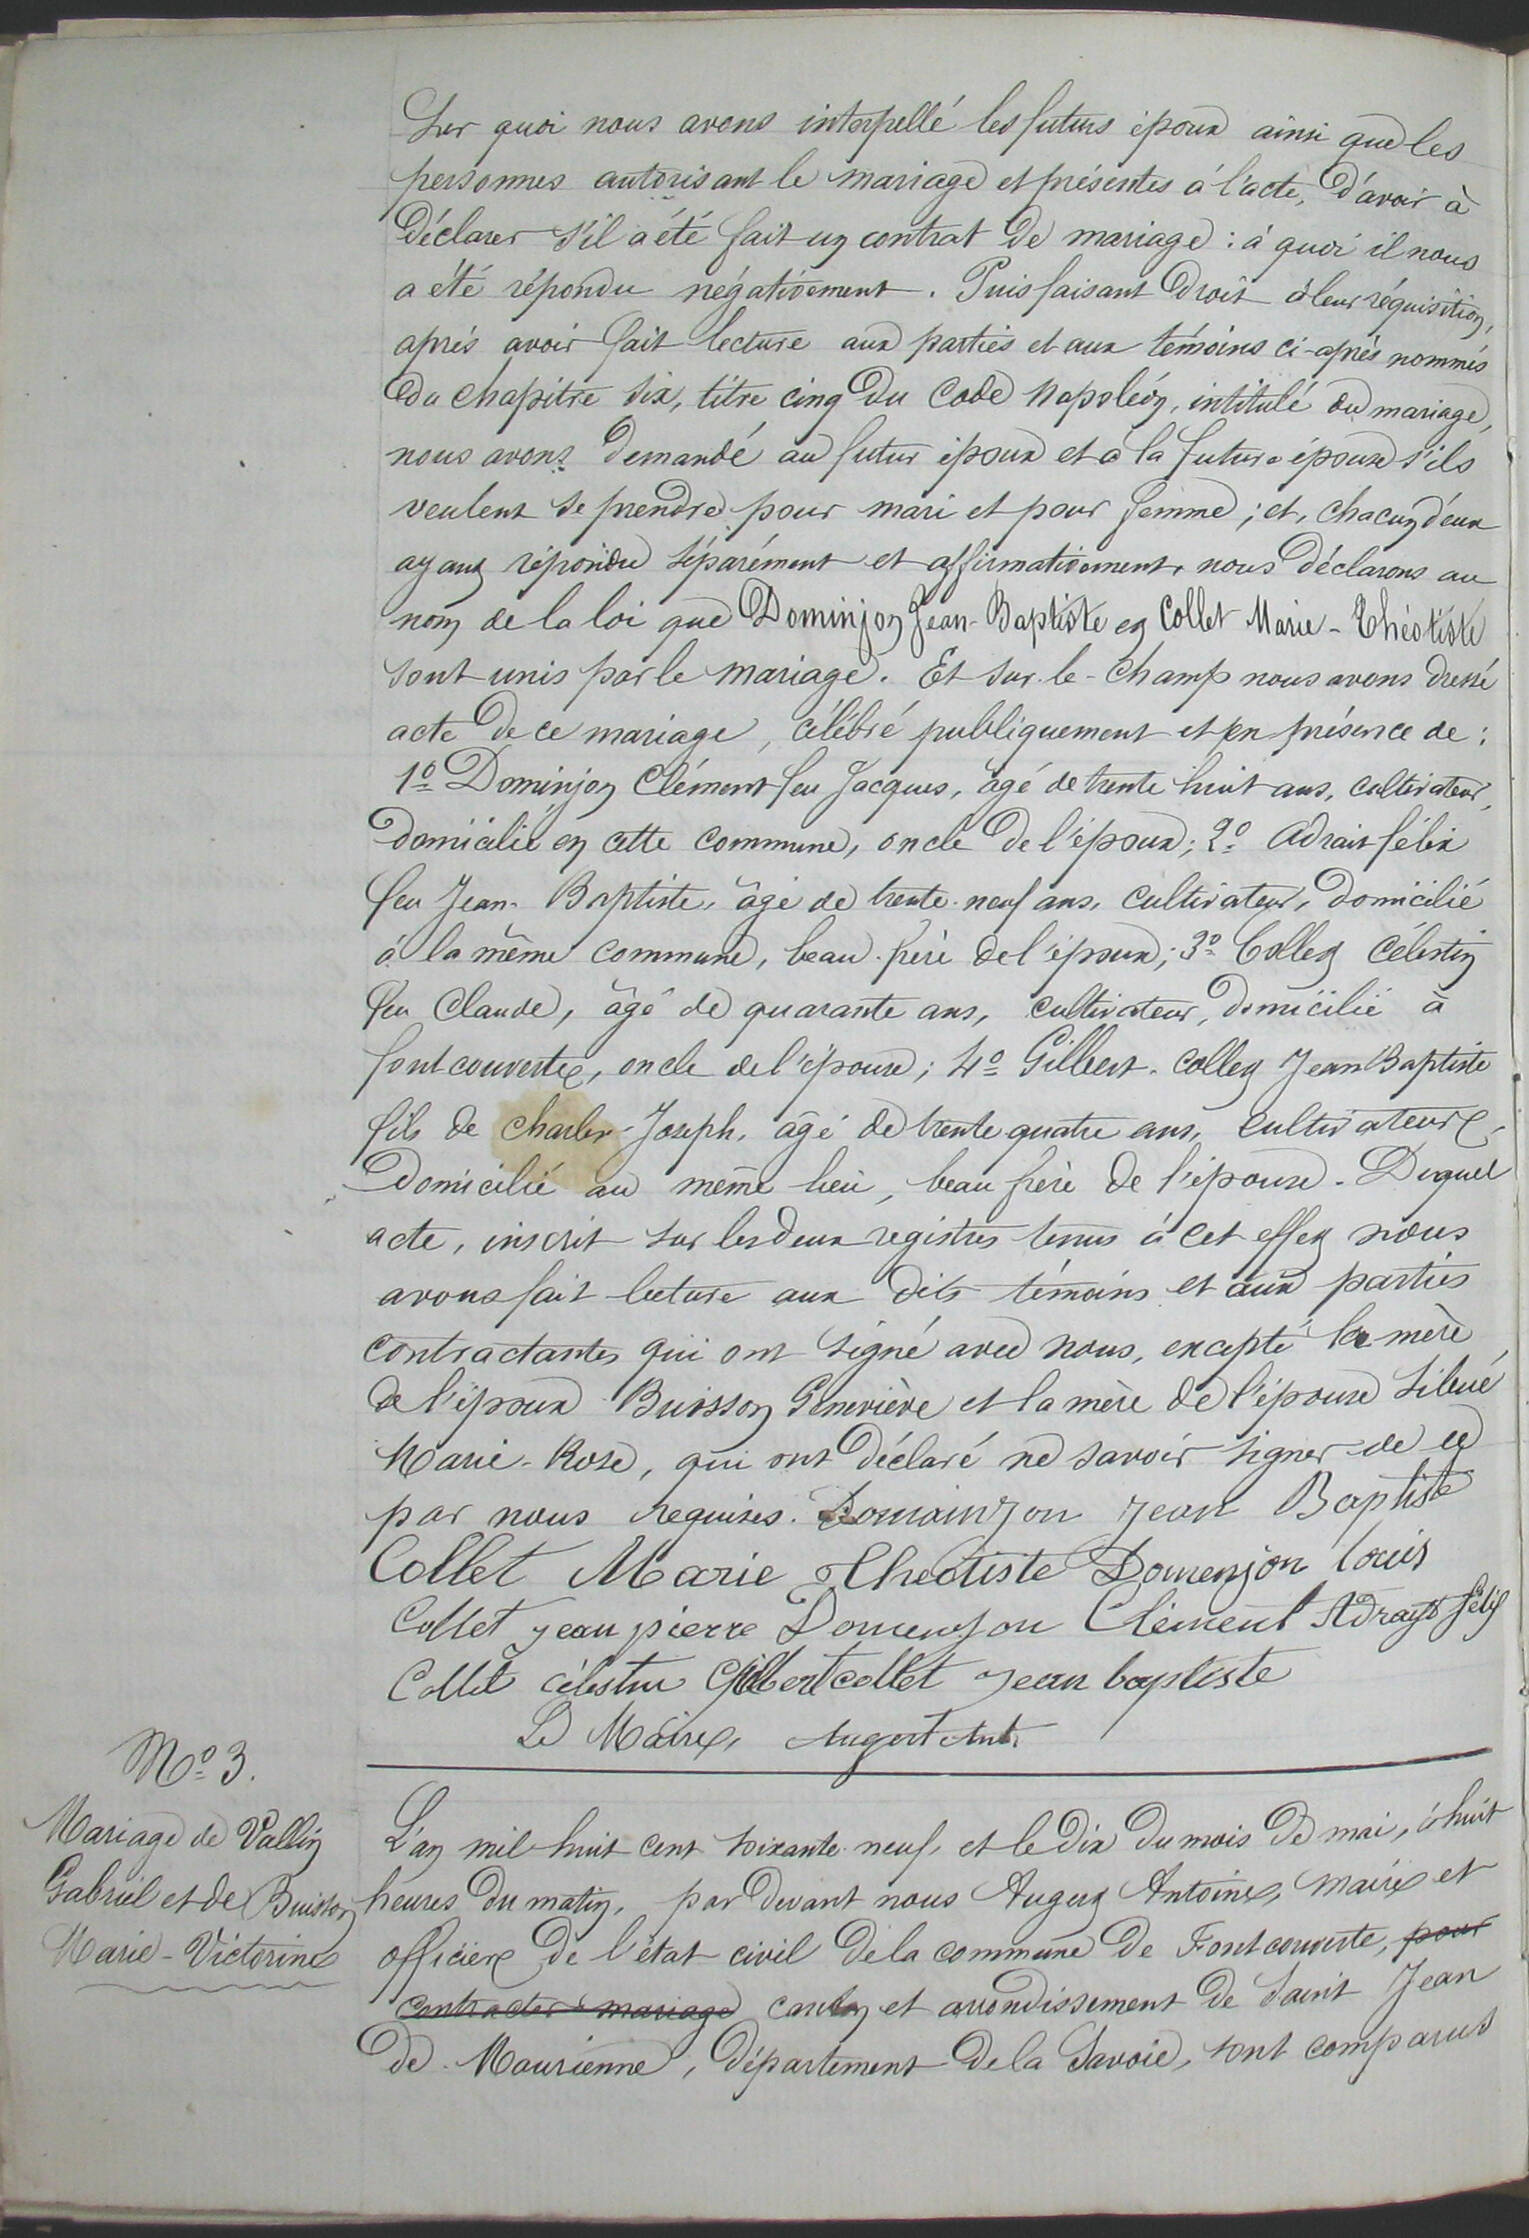 Sur quoi nous avons interpellé les futurs époux ainsi que les
personnes autorisant le mariage et présentes à l'acte, d'avoir à
déclarer s'il a été fait un contrat de mariage : à quoi il nous
a été répondu négativement. Puis faisant droit à leur réquisition,
après avoir fait lecture aux parties et aux témoins ci-après nommés
du chapitre six, titre cinq du Code Napoléon, intitulé du mariage,
nous avons demandé au futur époux et à la future épouse s'ils
veulent se prendre pour mari et pour femme ; et, chacun d'eux
ayant répondu séparément et affirmativement, nous déclarons au
nom de la loi que Dominjon Jean-Baptiste et Collet Marie-Théotiste
sont unis par le mariage. Et sur-le-champ nous avons dressé
acte de ce mariage, célébré publiquement et en présence de :
1º Dominjon Clément feu Jacques, âgé de trente huit ans, cultivateur,
domicilié en cette commune, oncle de l'époux ; 2º Adrait félix
feu Jean-Baptiste, âgé de trente-neuf ans, cultivateur, domicilié
à la même commune, beau-frère de l'époux ; 3º Collet Célestin
feu Claude, âgé de quarante ans, cultivateur, domicilié à
fontcouverte, oncle de l'épouse ; 4º Gilbert-Collet Jean Baptiste
fils de Charles-Joseph, âgé de trente quatre ans, cultivateur,
domicilié au même lieu, beau frère de l'épouse. Duquel
acte, inscrit sur les deux registres tenus à cet effet nous
avons fait lecture aux dits témoins et aux parties
contractantes qui ont signé avec nous, excepté la mère
de l'époux Buisson Geneviève et la mère de l'épouse
Marie-Rose, qui ont déclaré ne savoir signer de ce
par nous requises. Domainjon jean Baptiste
Collet Marie Theotiste Domenjon louis
Collet jean pierre Domenjon Clément Adrayt félix
Collet célestin Gilbert collet jean baptiste
Le Maire, Augert Ant.
Nº 3.
Mariage de Vallin
Gabriel et de Buisson
Marie-Victorine
L'an mil huit cent soixante-neuf, et le dix du mois de mai, à huit
heures du matin, par devant nous Augert Antoine, maire et
officier de l'état civil de la commune de Fontcouverte, pour
contracter mariage canton et arrondissement de Saint Jean
de Maurienne, département de la Savoie, sont comparus